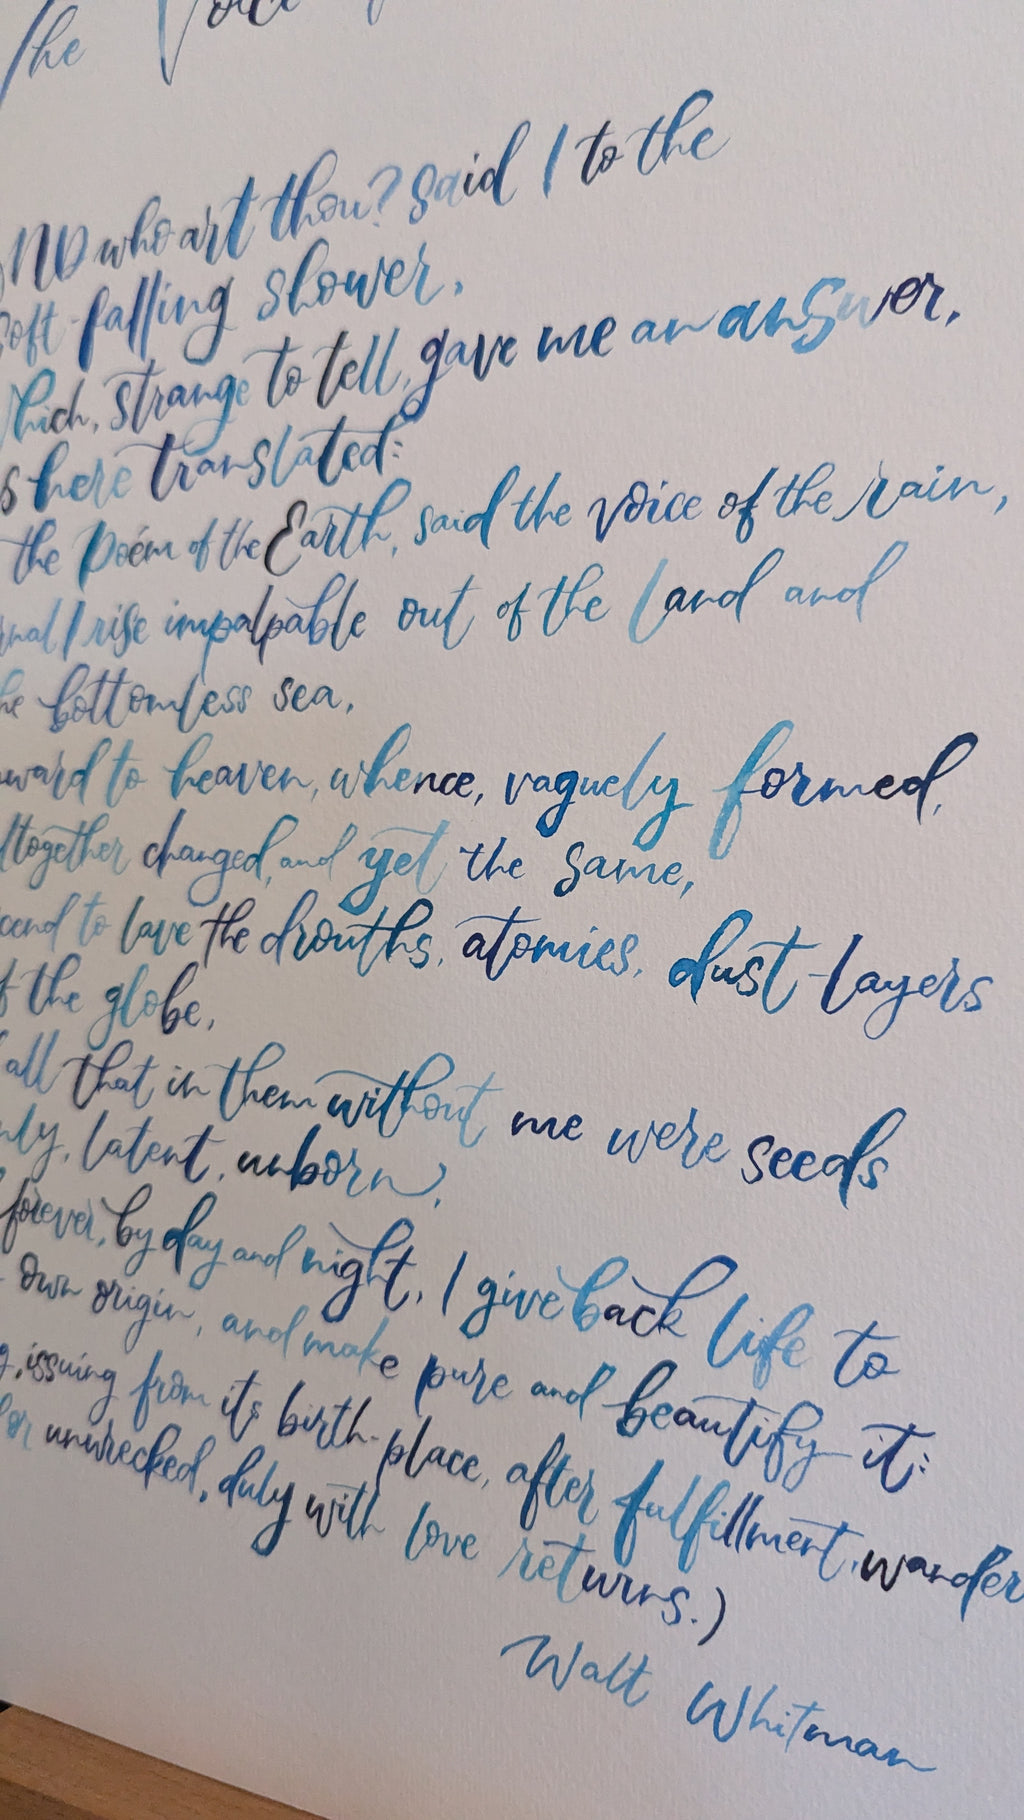 The Voice
ND who art thou? Said I to the
soft-falling shower,
hich, strange to tell, gave me an answer,
s here translated:
the Poem of the Earth, said the voice of the rain,
rnal I rise impalpable out of the land and
he bottomless sea,
ward to heaven, whence, vaguely formed,
ltogether changed, and yet the same,
cend to lave the drouths, atomies, dust-layers
f the globe,
all that in them without me were seeds
nly, latent, unborn;
forever, by day and night, I give back life to
own origin, and make pure and beautify it:
g, issuing from its birth-place, after fulfillment, wander
or unwrecked, duly with love returns.)
Walt Whitman